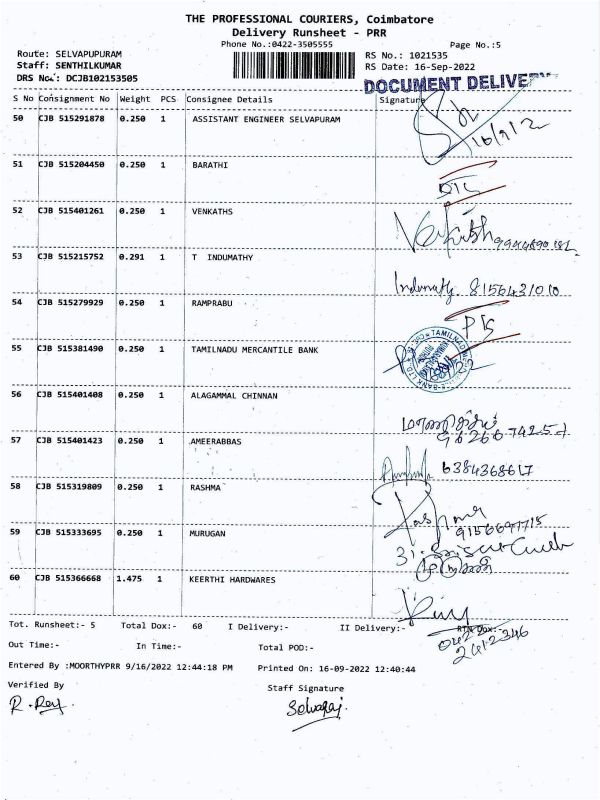 THE PROFESSIONAL COURIERS, Coimbatore
Delivery Runsheet - PRR
Phone No.:0422-3505555 Page No.:5
Route: SELVAPUPURAM RS No.: 1021535
Staff: SENTHILKUMAR RS Date: 16-Sep-2022
DRS No.: DCJB102153505
DOCUMENT DELIVERY
S No Consignment No Weight PCS Consignee Details Signature
50 CJB 515291878 0.250 1 ASSISTANT ENGINEER SELVAPURAM
16/9/2
51 CJB 515204450 0.250 1 BARATHI
52 CJB 515401261 0.250 1 VENKATHS
53 CJB 515215752 0.291 1 T INDUMATHY
Indumathy 8156431010
54 CJB 515279929 0.250 1 RAMPRABU
55 CJB 515381490 0.250 1 TAMILNADU MERCANTILE BANK
56 CJB 515401408 0.250 1 ALAGAMMAL CHINNAN
57 CJB 515401423 0.250 1 AMEERABBAS
6384368617
58 CJB 515319809 0.250 1 RASHMA
59 CJB 515333695 0.250 1 MURUGAN
60 CJB 515366668 1.475 1 KEERTHI HARDWARES
Tot. Runsheet:- 5 Total Dox:- 60 I Delivery:- II Delivery:-
Out Time:- In Time:- Total POD:-
Entered By :MOORTHYPRR 9/16/2022 12:44:18 PM Printed On: 16-09-2022 12:40:44
Verified By Staff Signature
R. Roy. Selvaraj.